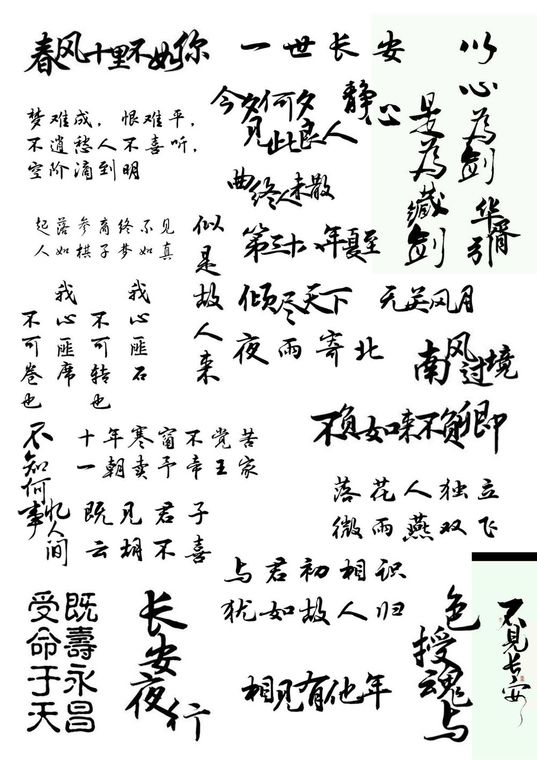 春风十里不如你
一世长安
以心為剑
是為藏剑
今夕何夕
见此良人
静心
梦难成，恨难平，
不道愁人不喜听，
空阶滴到明
曲终人未散
华胥引
起落参商终不见
人如棋子梦如真
似是故人来
第三十八年夏至
我心匪石
不可转也
我心匪席
不可卷也
倾尽天下
无关风月
夜雨寄北
南风过境
不负如来不负卿
不知何事忆人间
十年寒窗不觉苦
一朝卖予帝王家
既见君子
云胡不喜
落花人独立
微雨燕双飞
与君初相识
犹如故人归
受命于天
既壽永昌
长安夜行
相见有他年
色授魂与
不見长安